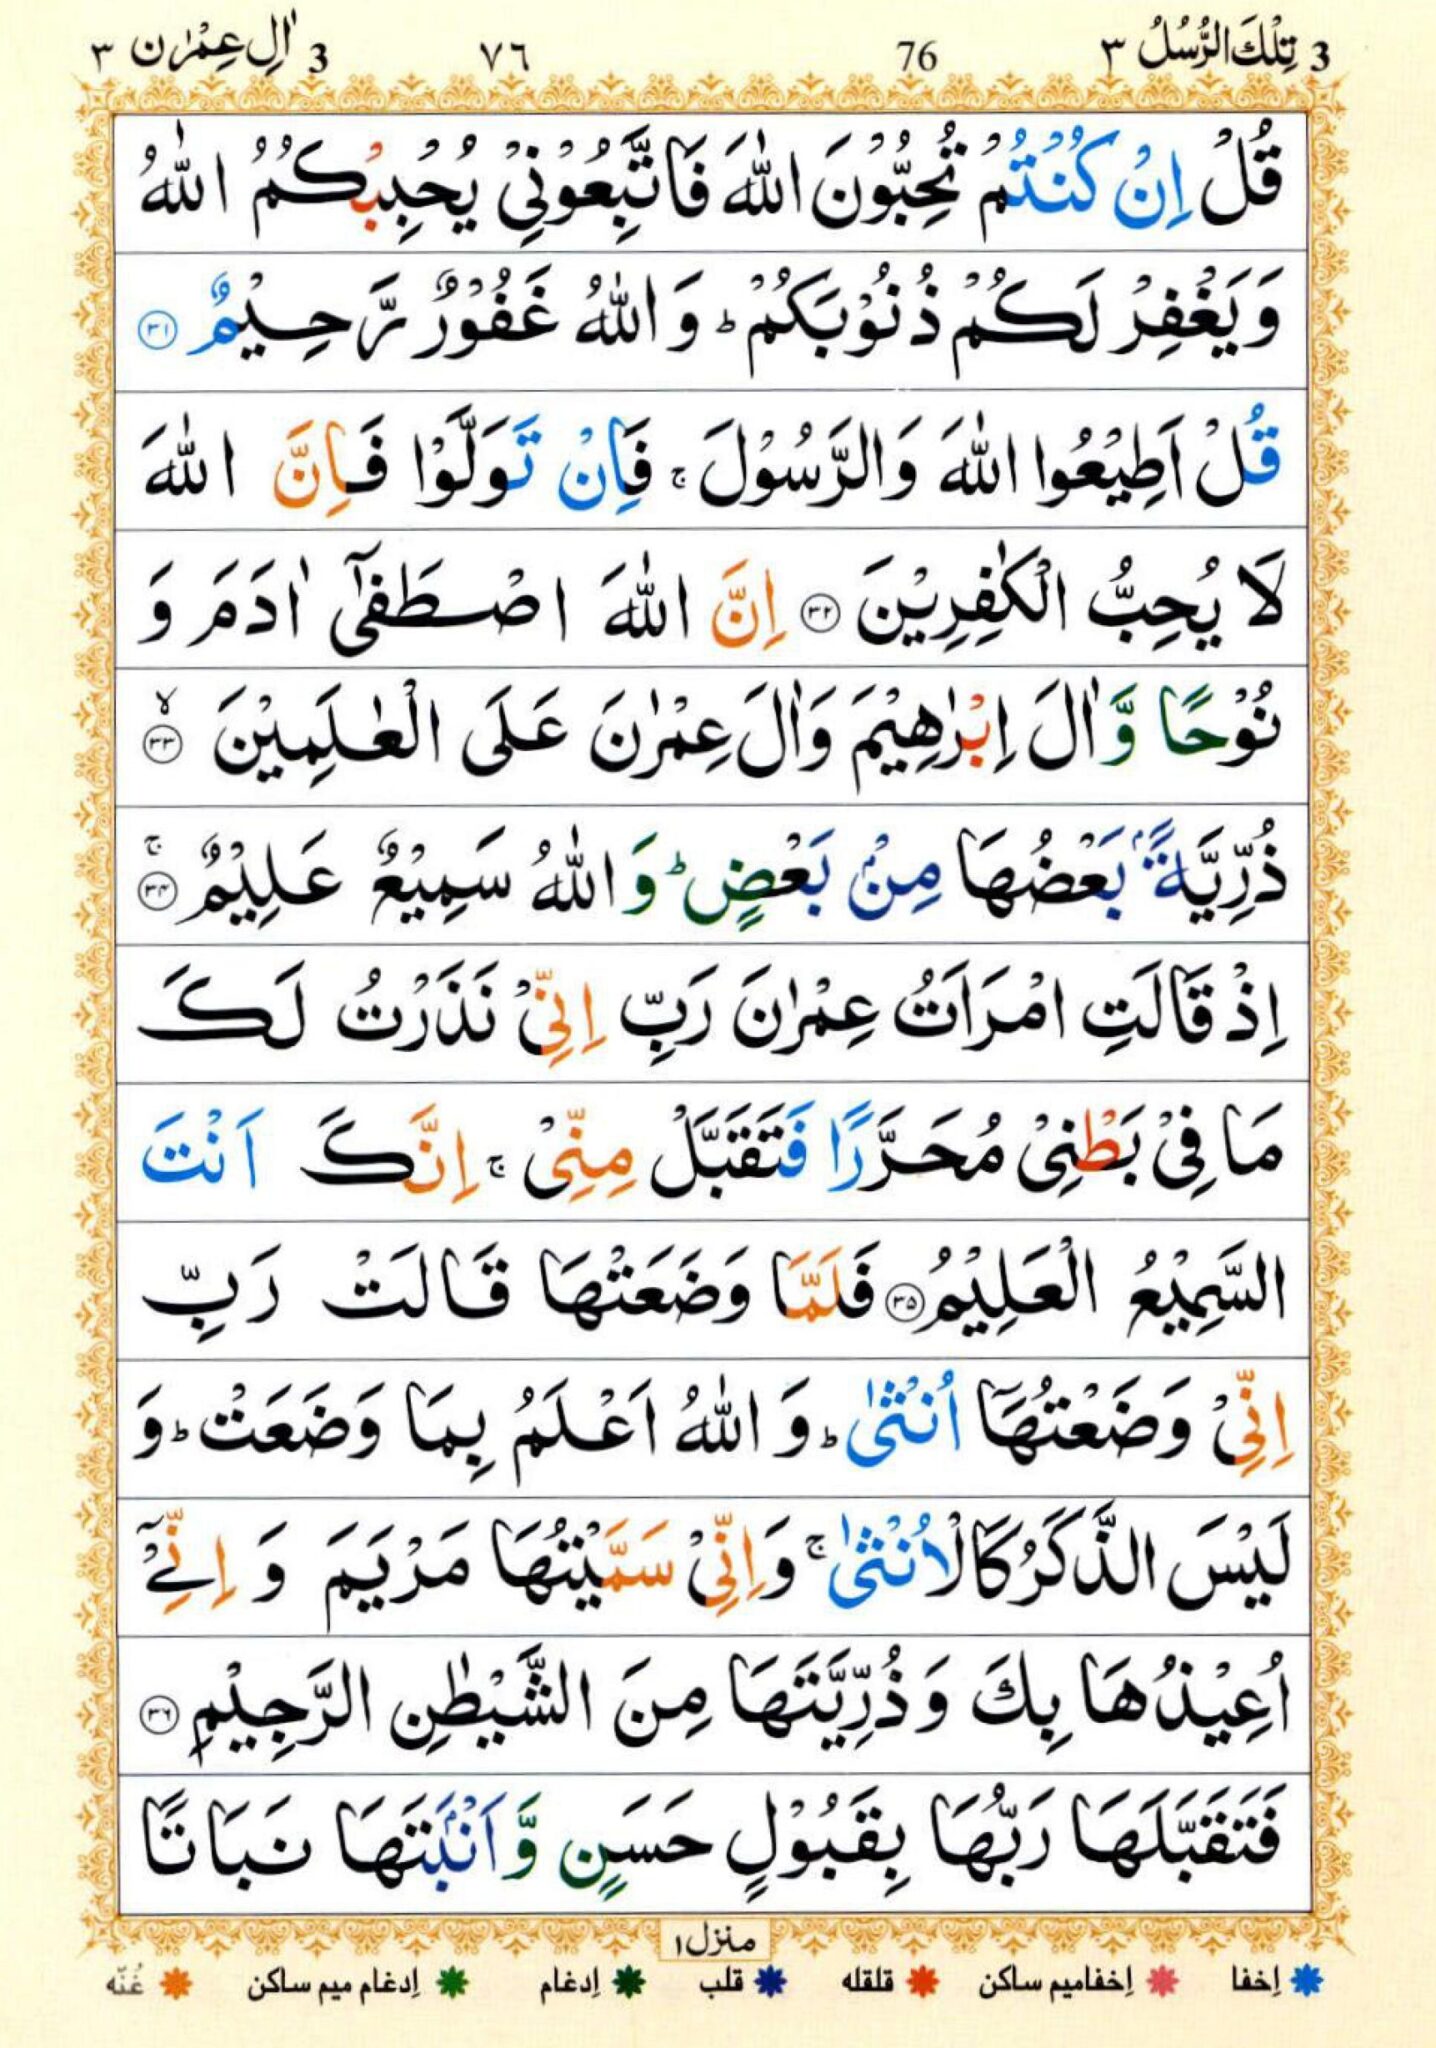 3 تِلْكَ الرُّسُلُ ٣ 76 ٧٦ 3 اٰلِ عِمْرٰن ٣
قُلْ اِنْ كُنْتُمْ تُحِبُّوْنَ اللّٰهَ فَاتَّبِعُوْنِيْ يُحْبِبْكُمُ اللّٰهُ
وَيَغْفِرْ لَكُمْ ذُنُوْبَكُمْ ؕ وَاللّٰهُ غَفُوْرٌ رَّحِيْمٌ ۝۳۱
قُلْ اَطِيْعُوا اللّٰهَ وَالرَّسُوْلَ ۚ فَاِنْ تَوَلَّوْا فَاِنَّ اللّٰهَ
لَا يُحِبُّ الْكٰفِرِيْنَ ۝۳۲ اِنَّ اللّٰهَ اصْطَفٰۤى اٰدَمَ وَ
نُوْحًا وَّاٰلَ اِبْرٰهِيْمَ وَاٰلَ عِمْرٰنَ عَلَى الْعٰلَمِيْنَ ۙ۝۳۳
ذُرِّيَّةًۢ بَعْضُهَا مِنْۢ بَعْضٍ ؕ وَاللّٰهُ سَمِيْعٌ عَلِيْمٌ ۚ۝۳۴
اِذْ قَالَتِ امْرَاَتُ عِمْرٰنَ رَبِّ اِنِّيْ نَذَرْتُ لَكَ
مَا فِيْ بَطْنِيْ مُحَرَّرًا فَتَقَبَّلْ مِنِّيْ ۚ اِنَّكَ اَنْتَ
السَّمِيْعُ الْعَلِيْمُ ۝۳۵ فَلَمَّا وَضَعَتْهَا قَالَتْ رَبِّ
اِنِّيْ وَضَعْتُهَاۤ اُنْثٰى ؕ وَاللّٰهُ اَعْلَمُ بِمَا وَضَعَتْ ؕ وَ
لَيْسَ الذَّكَرُ كَالْاُنْثٰى ۚ وَاِنِّيْ سَمَّيْتُهَا مَرْيَمَ وَ اِنِّيْۤ
اُعِيْذُهَا بِكَ وَذُرِّيَّتَهَا مِنَ الشَّيْطٰنِ الرَّجِيْمِ ۝۳۶
فَتَقَبَّلَهَا رَبُّهَا بِقَبُوْلٍ حَسَنٍ وَّاَنْۢبَتَهَا نَبَاتًا
منزل ۱
اِخفا اِخفامیم ساکن قلقله قلب اِدغام اِدغام میم ساکن غُنّه